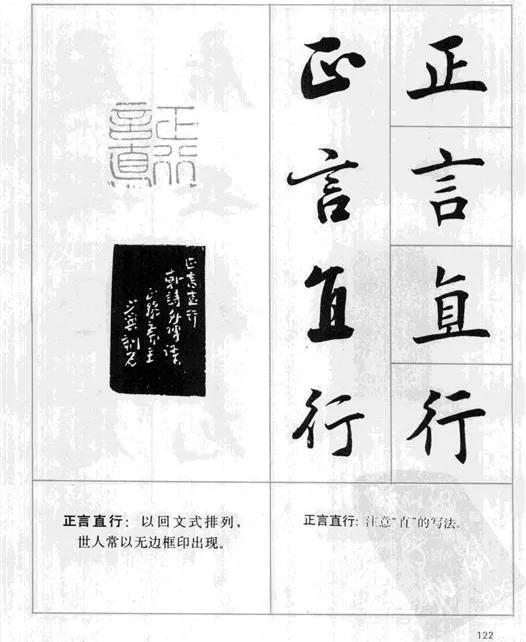 正言直行
正言直行
正言直行
正言直行
正言直行：以回文式排列，
世人常以无边框印出现。
正言直行：注意“直”的写法。
122